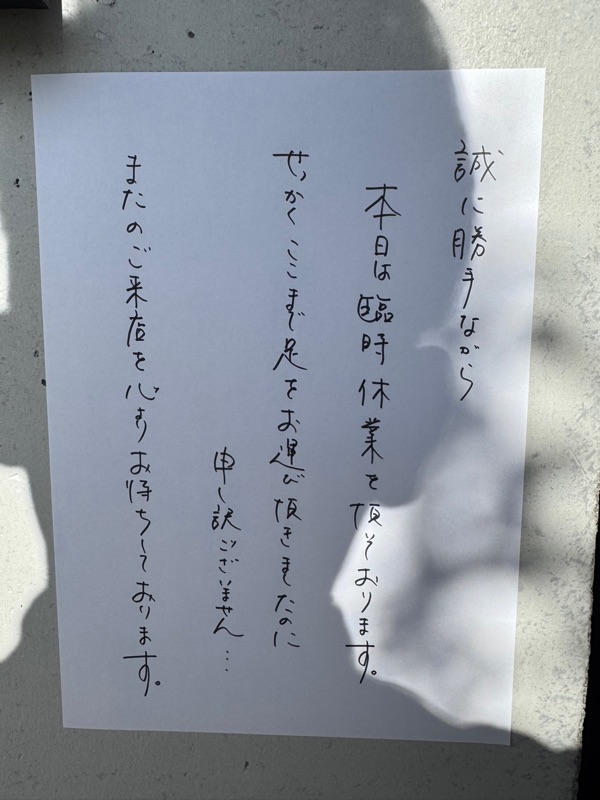 誠に勝手ながら
本日は臨時休業を頂いております。
せっかくここまで足をお運び頂きましたのに
申し訳ございません…
またのご来店を心よりお待ちしております。